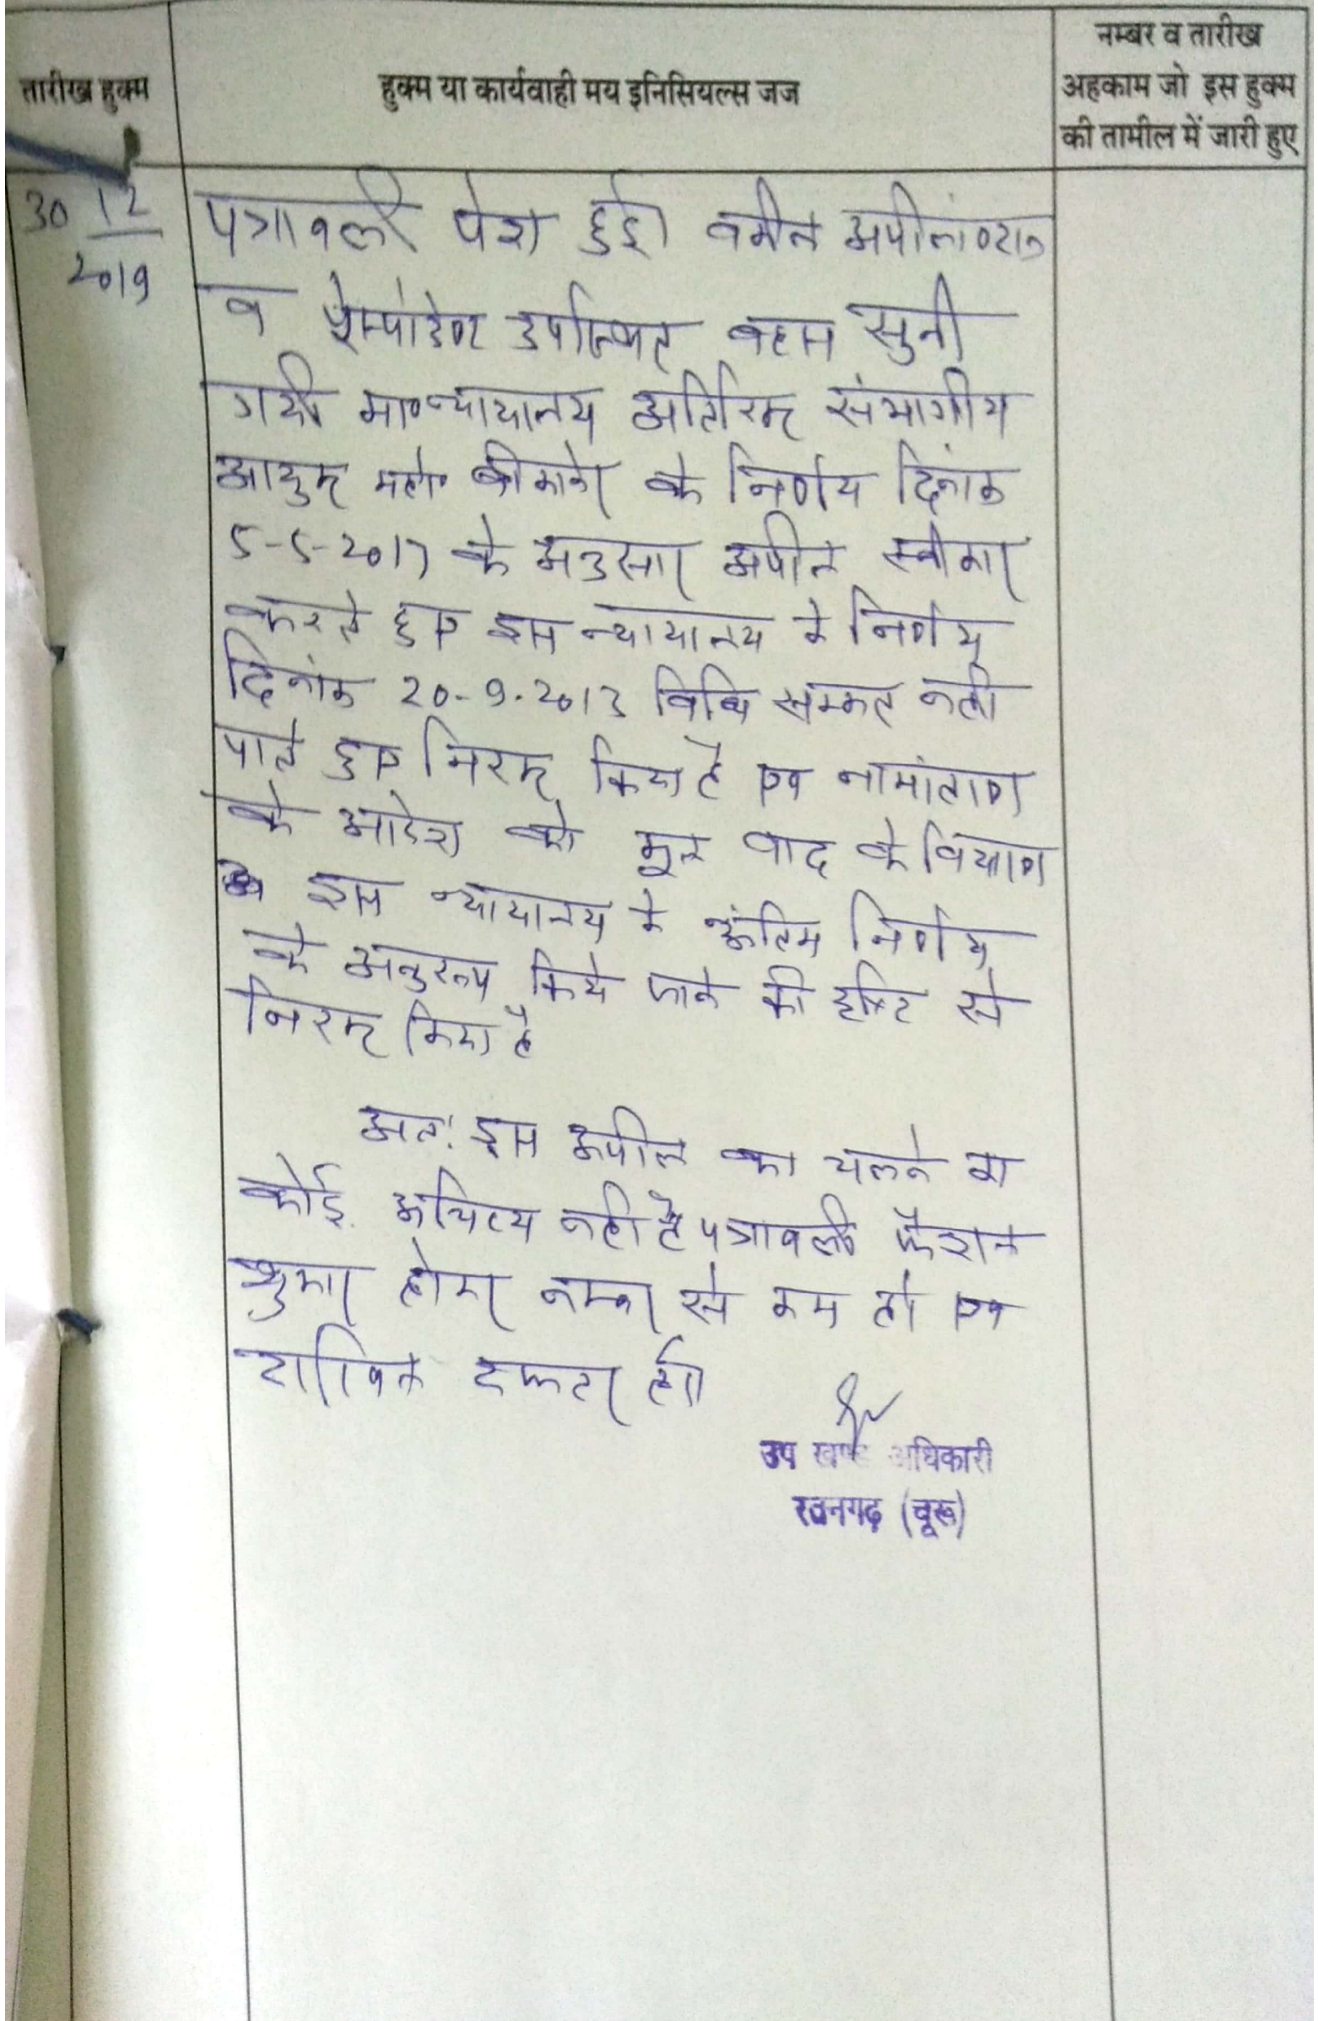 नम्बर व तारीख
तारीख हुक्म
हुक्म या कार्यवाही मय इनिसियल्स जज
अहकाम जो इस हुक्म
की तामील में जारी हुए
30 12
2019
पत्रावली पेश हुई। वकील अपीलांण्टान
व रेस्पोंडेण्ट उपस्थित बहस सुनी
गयी मा० न्यायालय अतिरिक्त संभागीय
आयुक्त महो० बीकानेर के निर्णय दिनांक
5-5-2017 के अनुसार अपील स्वीकार
करते हुए इस न्यायालय के निर्णय
दिनांक 20-9-2013 विधि सम्मत नही
पाते हुए निरस्त किया है एवं नामांतरण
के आदेश को मूल वाद के विचारण
इस न्यायालय के अंतिम निर्णय
के अनुरूप किये जाने की दृष्टि से
निरस्त किया है
अतः इस अपील का चलने का
कोई औचित्य नही है पत्रावली फैशल
शुमार होकर नम्बर से कम हो एवं
दाखिल दफ्तर हो।
उप खण्ड अधिकारी
रतनगढ़ (चूरू)